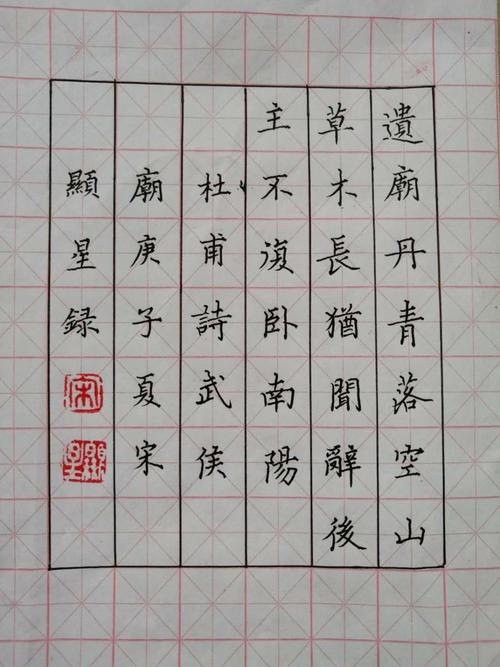 遺廟丹青落空山
草木長猶聞辭後
主不復卧南陽
杜甫詩武侯
廟庚子夏宋
顯星録
宋
顯星